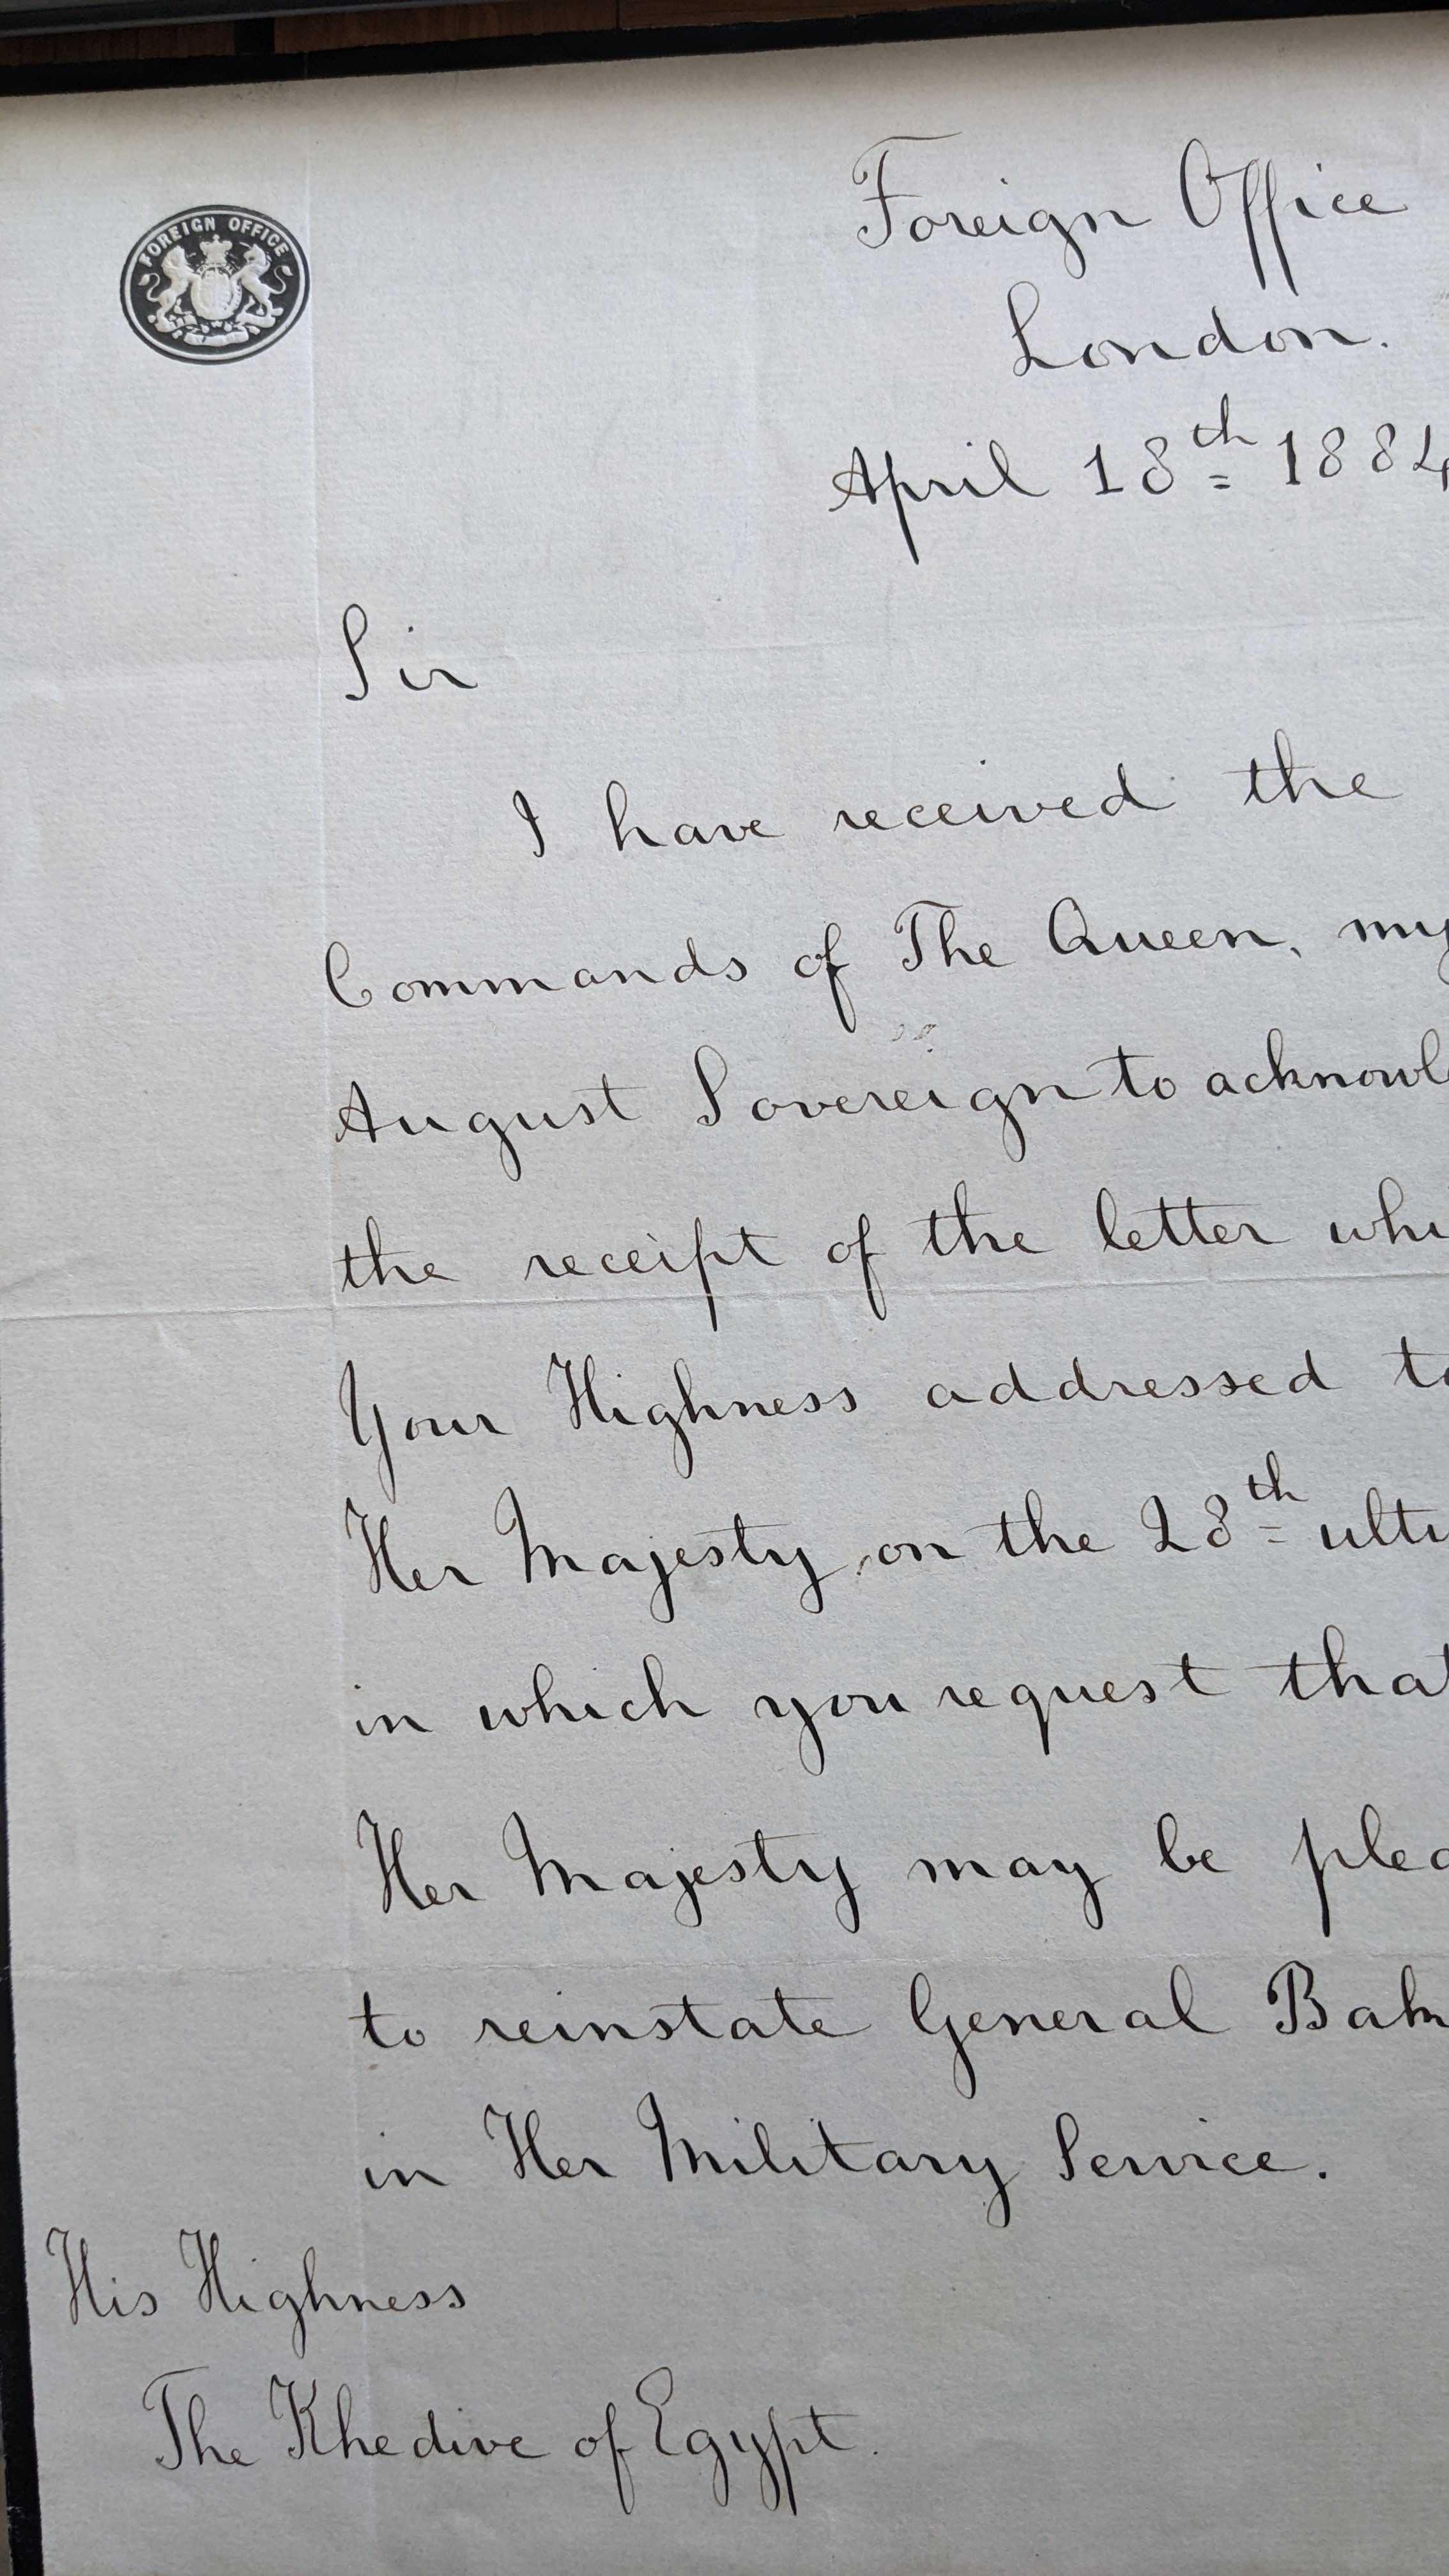 FOREIGN OFFICE
Foreign Office
London.
April 18th 1884
Sir
I have received the
Commands of The Queen, my
August Sovereign to acknowl
the receipt of the letter whi
Your Highness addressed to
Her Majesty on the 28th ulti
in which you request that
Her Majesty may be plea
to reinstate General Bak
in Her Military Service.
His Highness
The Khedive of Egypt.